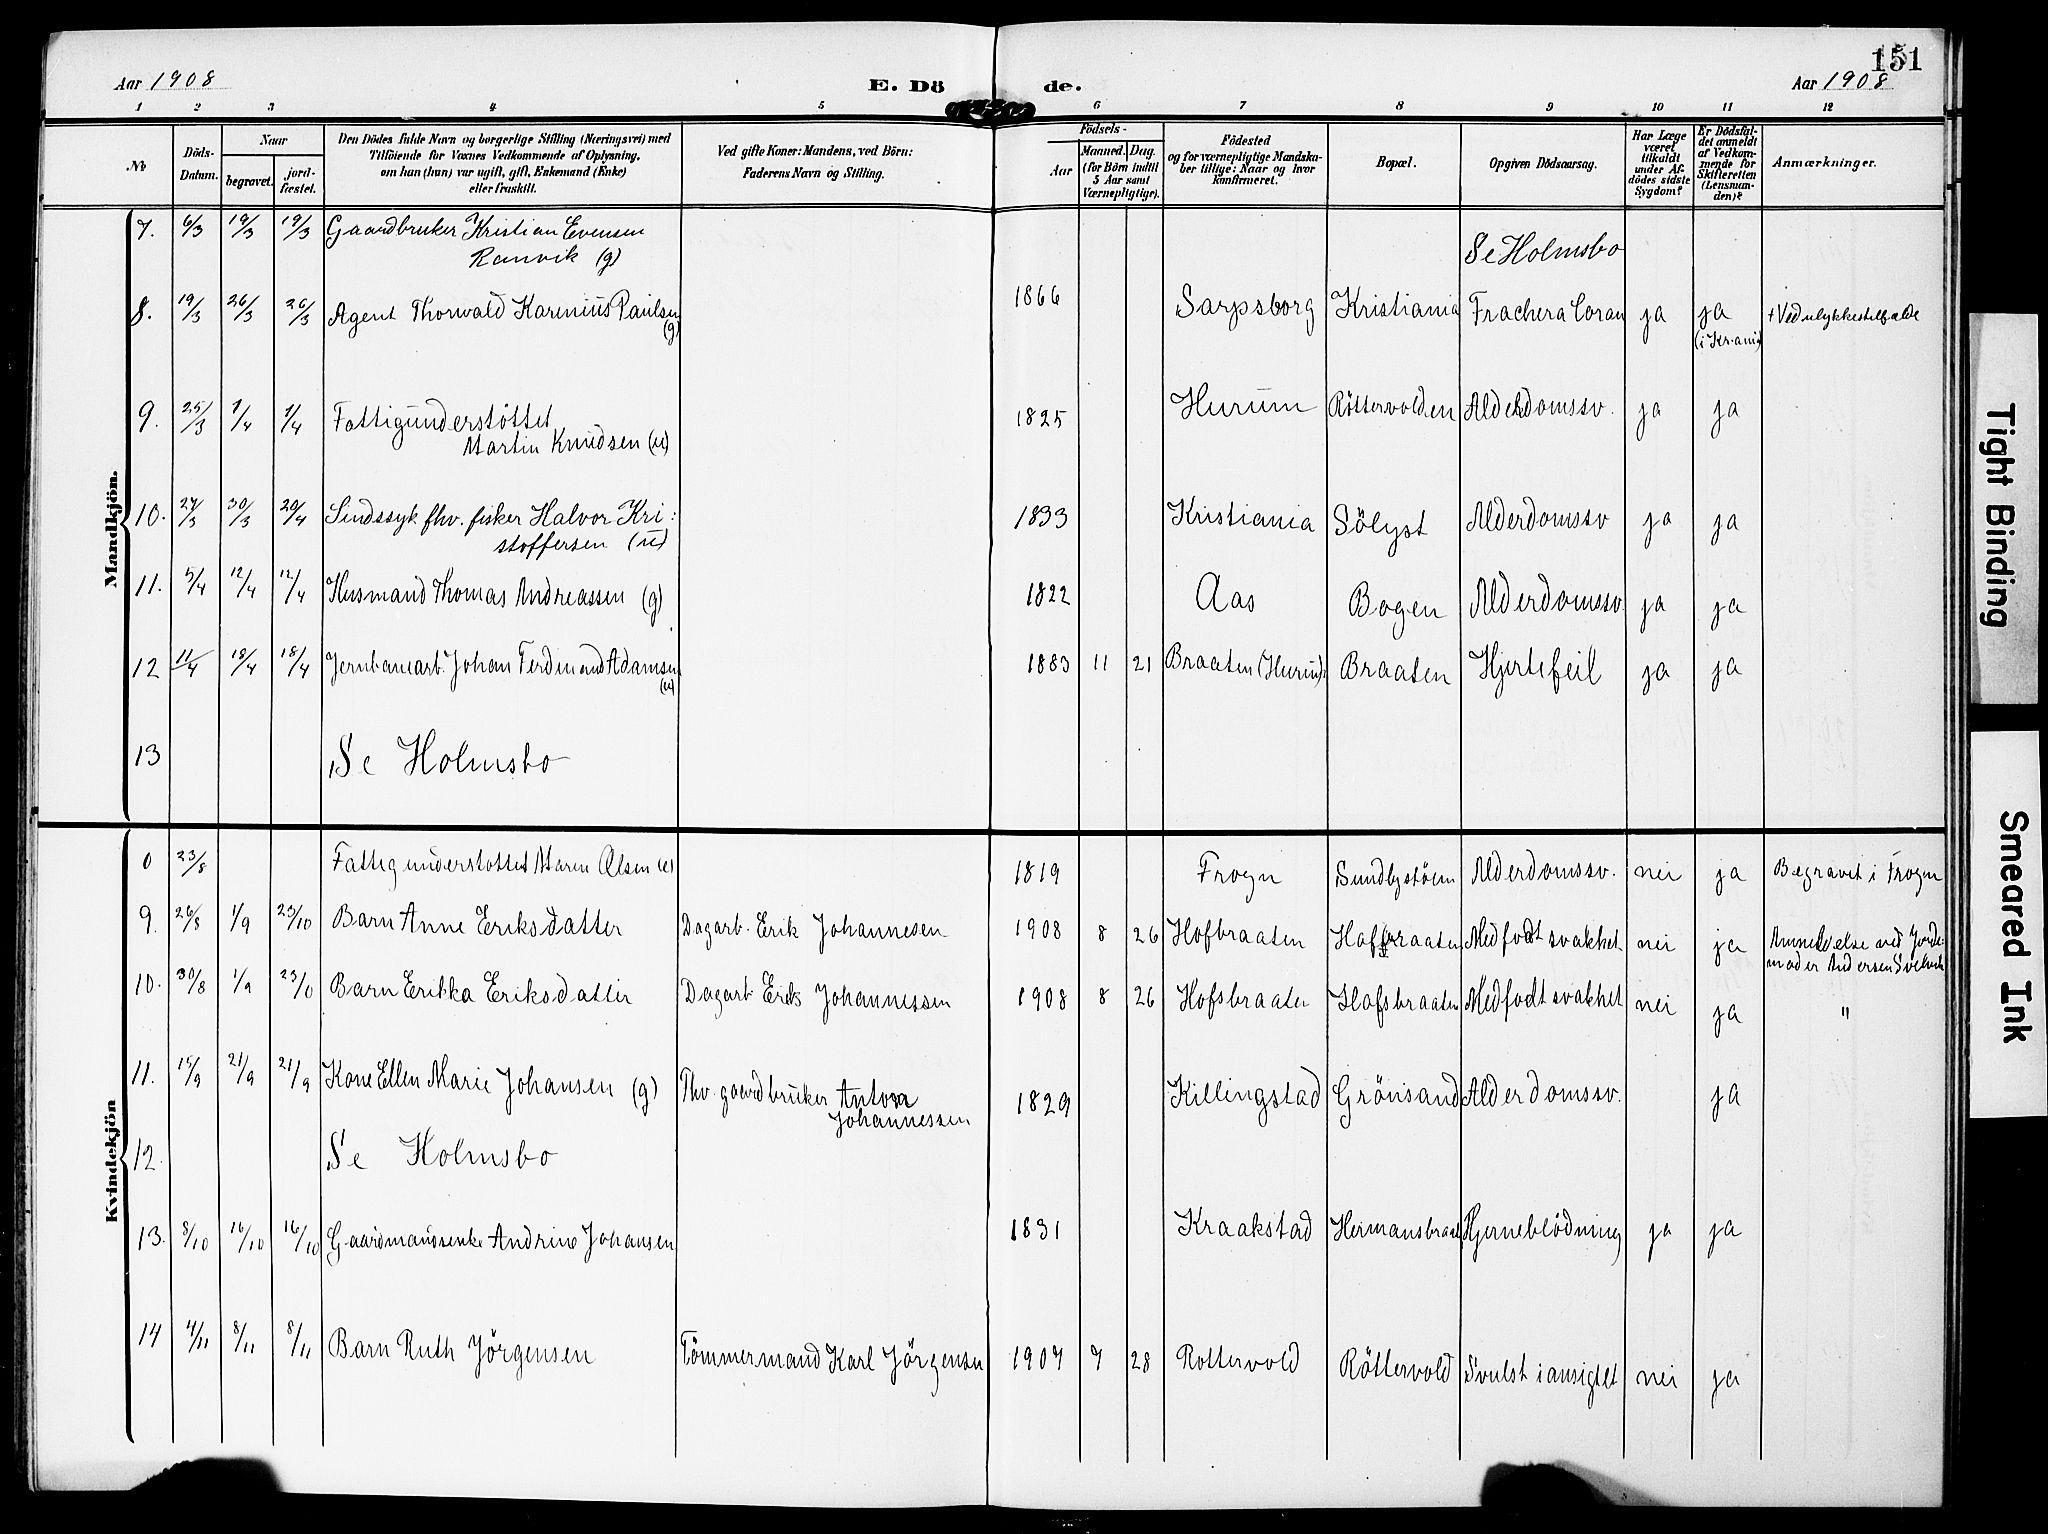 151
Aar 1908 E. Dö de. Aar 1908
1 2 3 4 5 6 7 8 9 10 11 12
№
Döds-Datum.
Naar
begravet. jord-fæstet.
Den Dödes fulde Navn og borgerlige Stilling (Næringsvei) med
Tilföiende for Voxnes Vedkommende af Oplysning,
om han (hun) var ugift, gift, Enkemand (Enke)
eller fraskilt.
Ved gifte Koner: Mandens, ved Börn:
Faderens Navn og Stilling.
Födsels-
Aar Maaned. Dag.
(for Börn indtil
5 Aar samt
Værnepligtige).
Födested
og for værnepligtige Mandska-
ber tillige: Naar og hvor
konfirmeret.
Bopæl.
Opgiven Dödsaarsag.
Har Læge
været
tilkaldt
under Af-
dödes sidste
Sygdom?
Er Dödsfal-
det anmeldt
af Vedkom-
mende for
Skifteretten
(Lensman-
den)?
Anmærkninger.
Mandkjön.
7. 6/3 19/3 19/3 Gaardbruker Kristian Evensen
Ranvik (g) Se Holmsbo
8. 19/3 26/3 26/3 Agent Thorvald Karenius Paulsen (g) 1866 Sarpsborg Kristiania Frachera Coran ja ja (i Kr.ania) + Ved ulykkestilfælde
9. 25/3 1/4 1/4 Fattigunderstöttet
Martin Knudsen (u) 1825 Hurum Röttervolden Alderdomssv. ja ja
10. 27/3 30/3 20/4 Sindssyk fhv. fisker Halvor Kri:
stoffersen (u) 1833 Kristiania Sölyst Alderdomssv ja ja
11. 5/4 12/4 12/4 Husmand Thomas Andreassen (g) 1822 Aas Bogen Alderdomssv. ja ja
12 11/4 18/4 18/4 Jernbanearb. Johan Ferdinand Adamsen (u) 1883 11 21 Braaten (Hurum) Braaten Hjertefeil ja ja
13 Se Holmsbo
Kvindekjön
0 23/8 Fattigunderstöttet Maren Olsen (e) 1819 Frogn Alderdomssv. nei ja Begravet i Frogn
9. 26/8 1/9 23/10 Barn Anne Eriksdatter Dagarb. Erik Johannesen 1908 8 26 Hofbraaten Hofsbraaten Medfödt svakhet nei ja Anmeldelse ved Jorde-
moder Andersen Svelvik
10. 30/8 1/9 23/0 Barn Erikka Eriksdatter Dagarb. Erik Johannessen 1908 8 26 Hofsbraaten Hofsbraaten Medfodt svakhet nei ja "
11. 15/9 21/9 21/9 Kone Ellen Marie Johansen (g) Fhv. gaardbruker Anton
Johannessen 1829 Killingstad Grönsand Alderdomssv. ja
12. Se Holmsbo
13. 8/10 16/10 16/10 Gaardmandsenke Andrine Johansen 1831 Kraakstad Hermansbraat Hjerneblödning ja ja
14 4/11 8/11 8/11 Barn Ruth Jörgensen Tömmermand Karl Jörgensen 1907 7 28 Rottervold Röttervold Svulst i ansigtet nei ja
Tight Binding
Smeared Ink